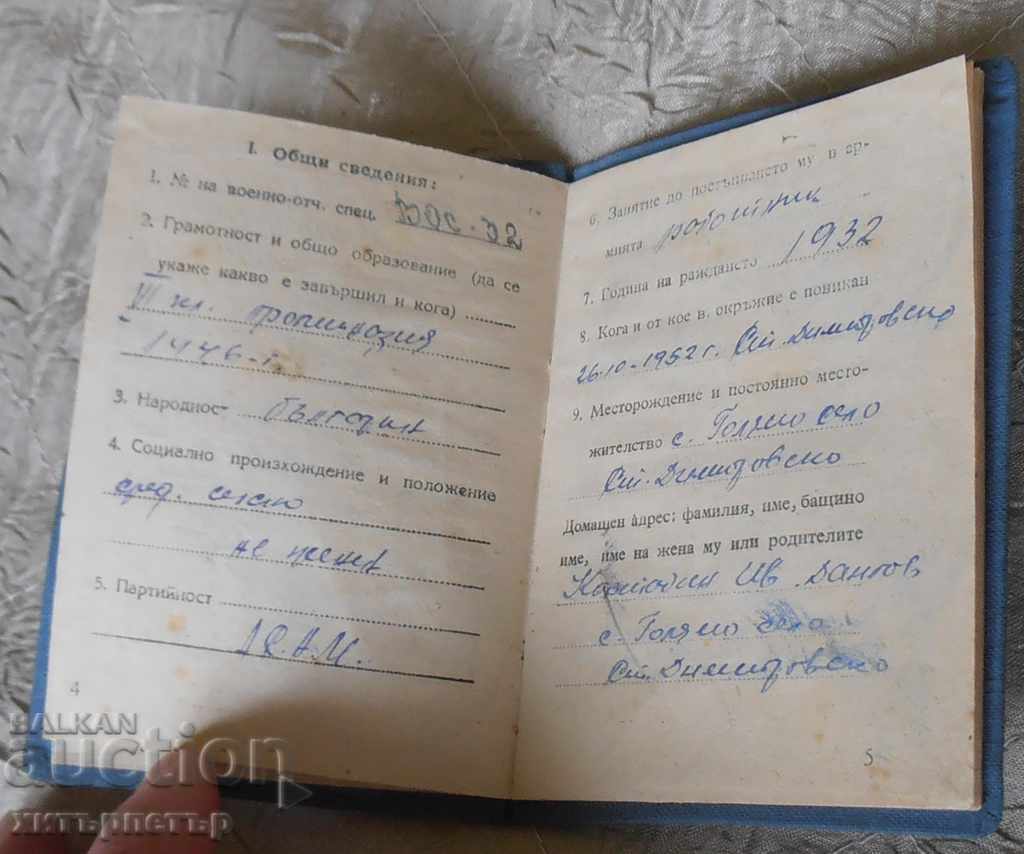 I. Общи сведения:
1. № на военно-отч. спец. ВОС-32
2. Грамотност и общо образование (да се
укаже какво е завършил и кога)
VII кл. прогимназия
1946 г.
3. Народност българин
4. Социално произхождение и положение
сред. селско
не женен
5. Партийност
4
6. Занятие до постъпването му в ар-
мията работник
7. Година на раждането 1932
8. Кога и от кое в. окръжие е повикан
26.10-1952 г. Ст. Димитровско
9. Месторождение и постоянно место-
жителство с. Голямо село
Ст. Димитровско
Домашен адрес: фамилия, име, бащино
име, име на жена му или родителите
Ив. Дангов
с. Голямо село
Ст. Димитровско
5
BALKAN
auction
хитърпетър